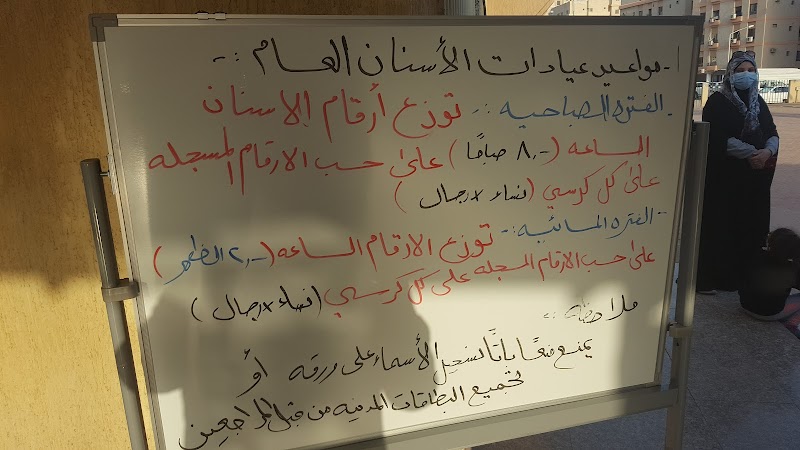 ١- مواعيد عيادات الأسنان العام :-
- الفتره الصباحيه :- توزع أرقام الاسنان
الساعه (-,٨ صباحًا) على حسب الارقام المسجله
على كل كرسي (نساء \ رجال)
- الفتره المسائيه :- توزع الارقام الساعه (-,٢ الظهر)
على حسب الارقام المسجله على كل كرسي (نساء \ رجال)
ملاحظه :-
يمنع منعًا باتًا تسجيل الأسماء على ورقه أو
تجميع البطاقات المدنيه من قبل المراجعين